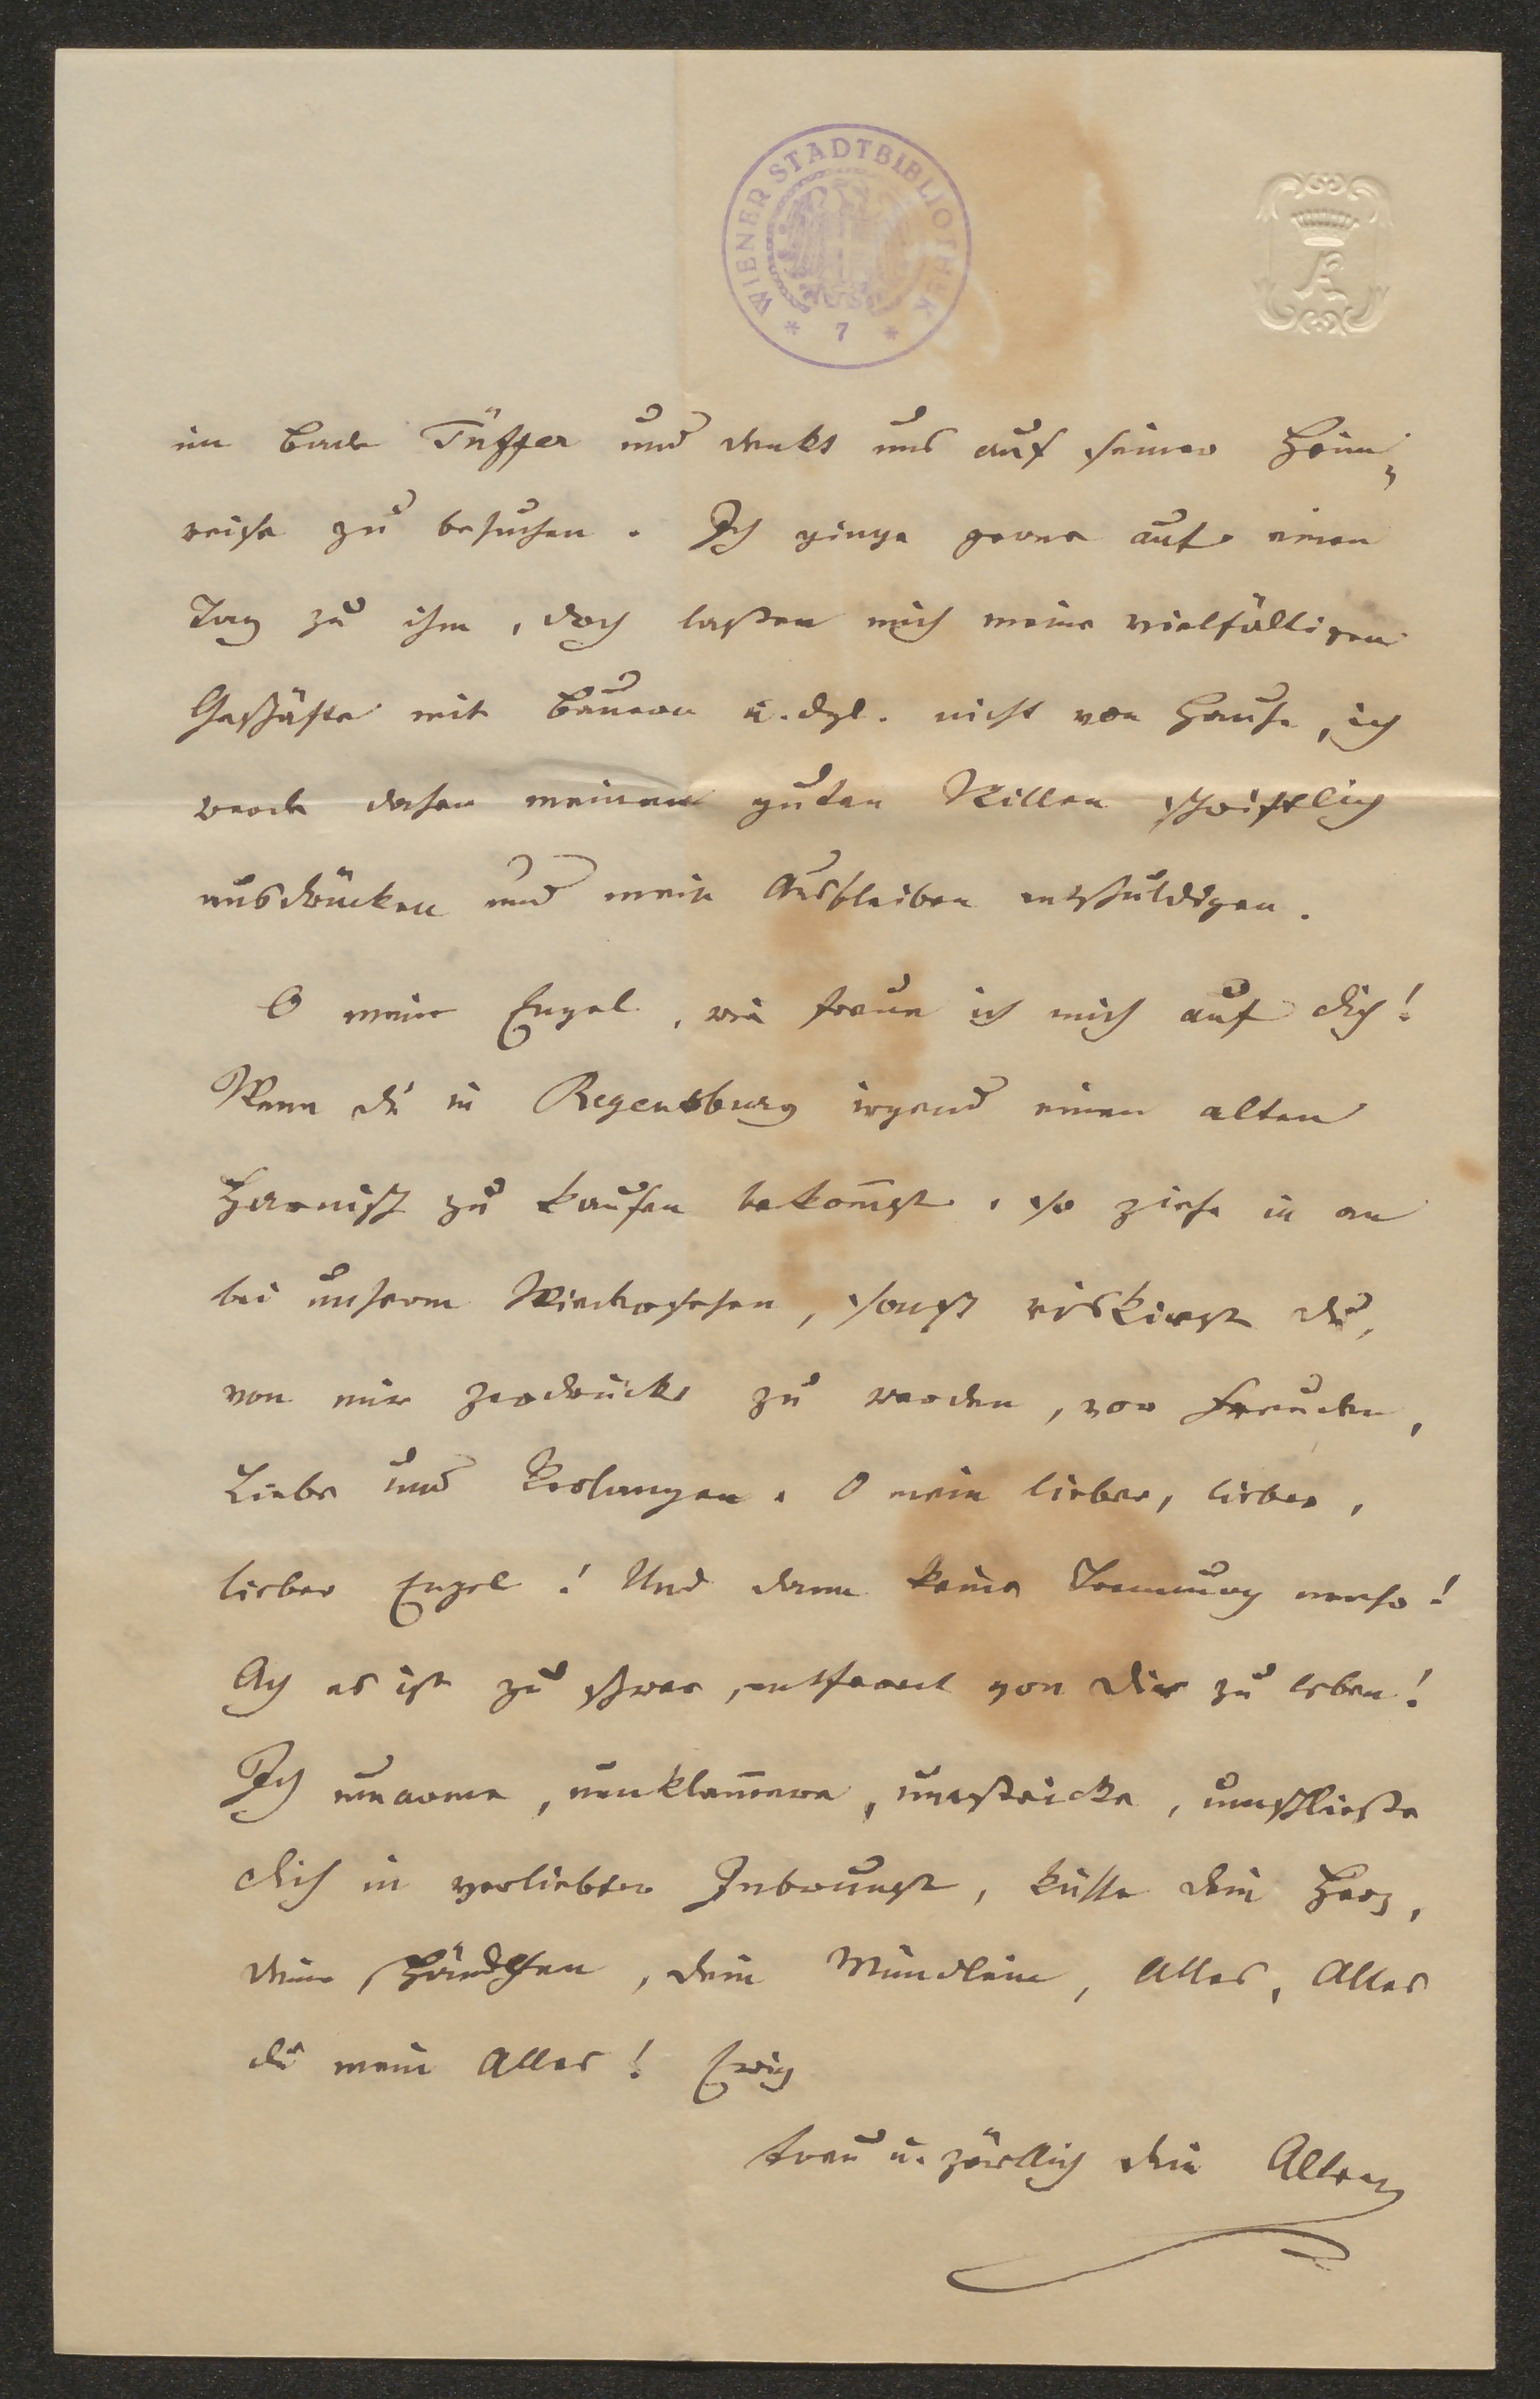 WIENER STADTBIBLIOTHEK
* 7 *
im Bade Tüffer und denkt uns auf seiner Heim-
reise zu besuchen. Ich ginge gerne auf einen
Tag zu ihm, doch laßen mich meine vielfältigen
Geschäfte mit Bauern u. dgl. nicht von Hause, ich
werde daher meinen guten Willen schriftlich
ausdrücken und mein Ausbleiben entschuldigen.
O mein Engel, wie freue ich mich auf dich!
Wenn du in Regensburg irgend einen alten
Harnisch zu kaufen bekom̄st, so ziehe in an
bei unserm Wiedersehen, sonst riskirst du,
von mir zerdrückt zu werden, vor Freuden,
Liebe und Verlangen. O mein lieber, lieber,
lieber Engel! Und dann keine Trennung mehr!
Ach es ist zu schwer, entfernt von dir zu leben!
Ich umarme, umklam̄ere, umstricke, umschließe
dich in verliebter Inbrunst, küsse dein Herz,
deine Händchen, dein Mündlein, Alles, Alles
du mein Alles! Ewig
treu u. zärtlich dein Alter